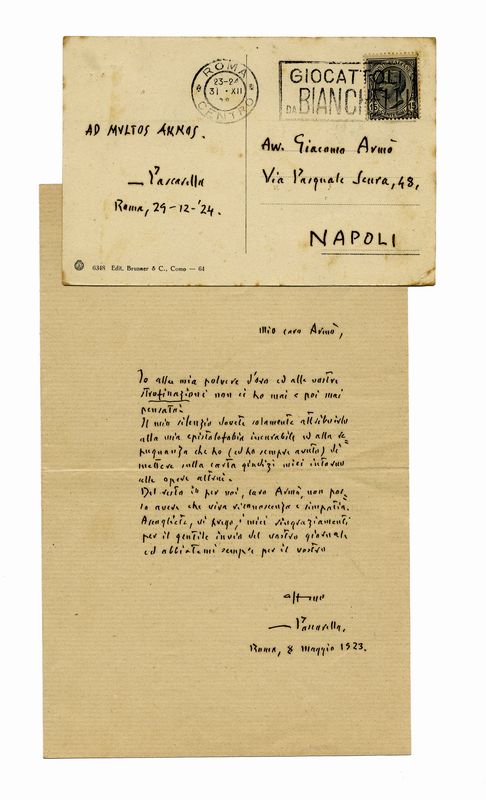 ROMA
23-24
31 · XII
CENTRO
GIOCATTOLI
DA BIANCHELLI
15 15
AD MVLTOS ANNOS.
Pascarella
Roma, 29-12-'24.
Avv. Giacomo Armò
Via Pasquale Scura, 48,
NAPOLI
6348 Edit. Brunner & C., Como — 64
Mio caro Armò,
Io alla mia polvere d'oro ed alle vostre
strofinazioni non ci ho mai e poi mai
pensato.
Il mio silenzio dovete solamente attribuirlo
alla mia epistolofobia incurabile ed alla re-
pugnanza che ho (ed ho sempre avuto) di
mettere sulla carta giudizi miei intorno
alle opere altrui.
Del resto io per voi, caro Armò, non pos-
so avere che viva riconoscenza e simpatia.
Accogliete, vi prego, i miei ringraziamenti
per il gentile invio del vostro giornale
ed abbiatemi sempre per il vostro
aff.mo
Pascarella.
Roma, 8 maggio 1923.